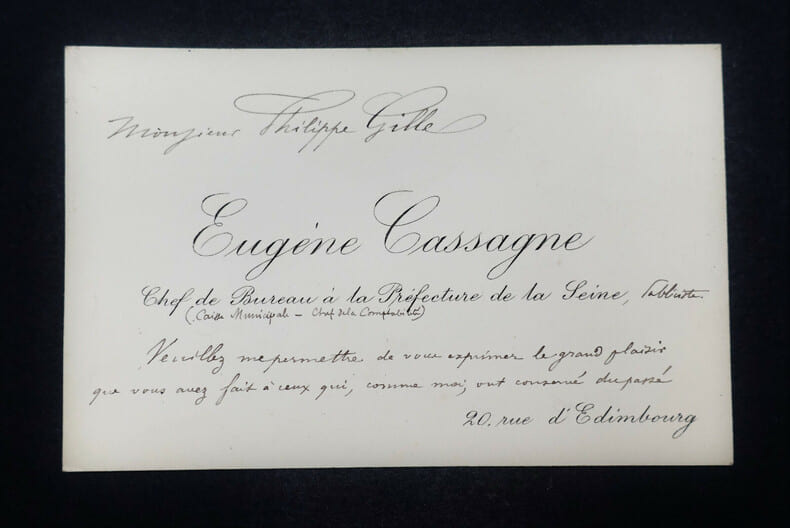 Monsieur Philippe Gille
Eugène Cassagne
Chef de Bureau à la Préfecture de la Seine,
(Caisse Municipale – Chef de la Comptabilité)
Veuillez me permettre de vous exprimer le grand plaisir
que vous avez fait à ceux qui, comme moi, ont conservé du passé
20, rue d'Edimbourg